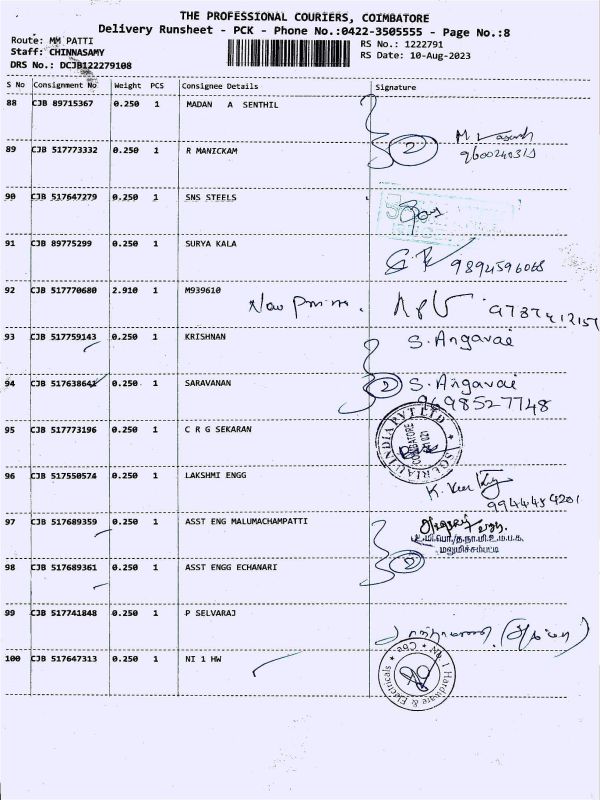 THE PROFESSIONAL COURIERS, COIMBATORE
Delivery Runsheet - PCK - Phone No.:0422-3505555 - Page No.:8
Route: MM PATTI
RS No.: 1222791
Staff: CHINNASAMY
RS Date: 10-Aug-2023
DRS No.: DCJB122279108
S No Consignment No Weight PCS Consignee Details Signature
88 CJB 89715367 0.250 1 MADAN A SENTHIL
2
89 CJB 517773332 0.250 1 R MANICKAM
90 CJB 517647279 0.250 1 SNS STEELS
91 CJB 89775299 0.250 1 SURYA KALA
9894596068
92 CJB 517770680 2.910 1 M939610
9787412157
93 CJB 517759143 0.250 1 KRISHNAN S. Angavai
94 CJB 517638641 0.250 1 SARAVANAN 2 S. Angavai
9698527748
95 CJB 517773196 0.250 1 C R G SEKARAN
INDIA PVT LTD
COIMBATORE
96 CJB 517550574 0.250 1 LAKSHMI ENGG
9944454201
97 CJB 517689359 0.250 1 ASST ENG MALUMACHAMPATTI
உ.மி.பொ./த.நா.மி.உ.ம.ப.க.
மலுமிச்சம்பட்டி
98 CJB 517689361 0.250 1 ASST ENGG ECHANARI 2
99 CJB 517741848 0.250 1 P SELVARAJ
100 CJB 517647313 0.250 1 NI 1 HW
No. 1 Hardware & Electricals * Cbe *